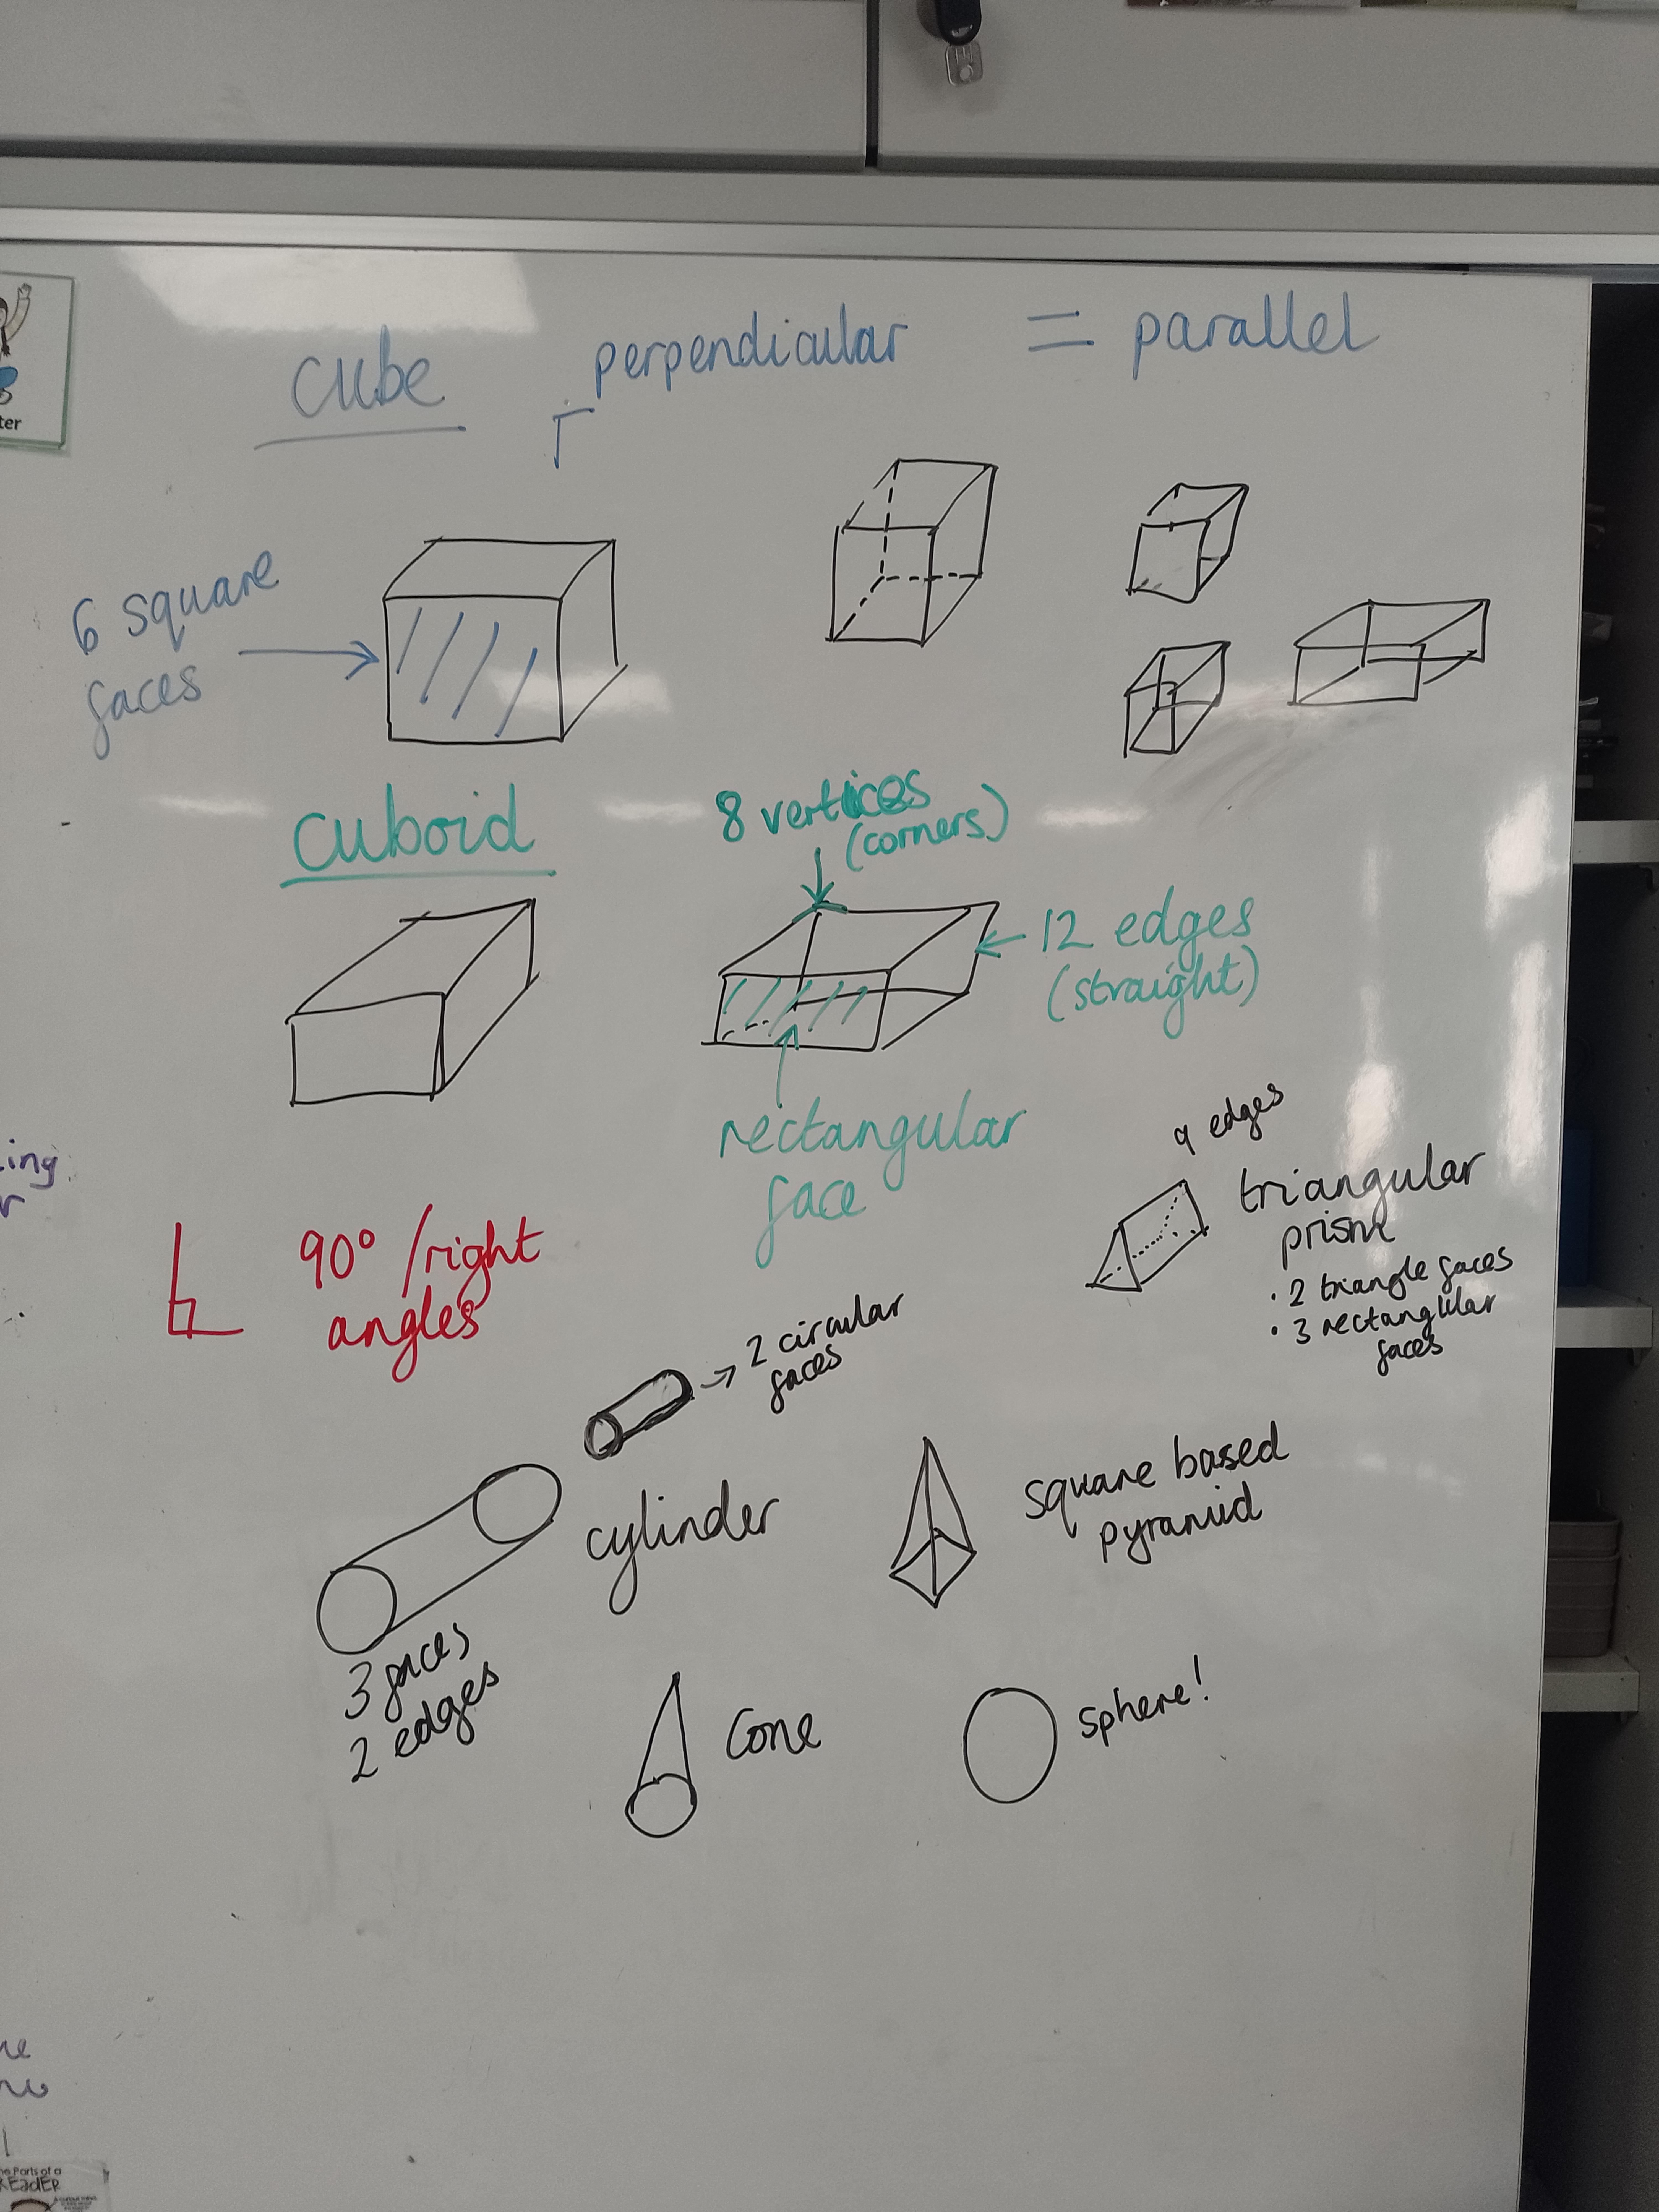 cube
perpendicular
= parallel
6 square
faces
cuboid
8 vertices
(corners)
12 edges
(straight)
rectangular
face
90° /right
angles
9 edges
triangular
prism
• 2 triangle faces
• 3 rectangular
faces
2 circular
faces
cylinder
3 faces
2 edges
square based
pyramid
Cone
sphere!
ter
ing
he Parts of a
READER